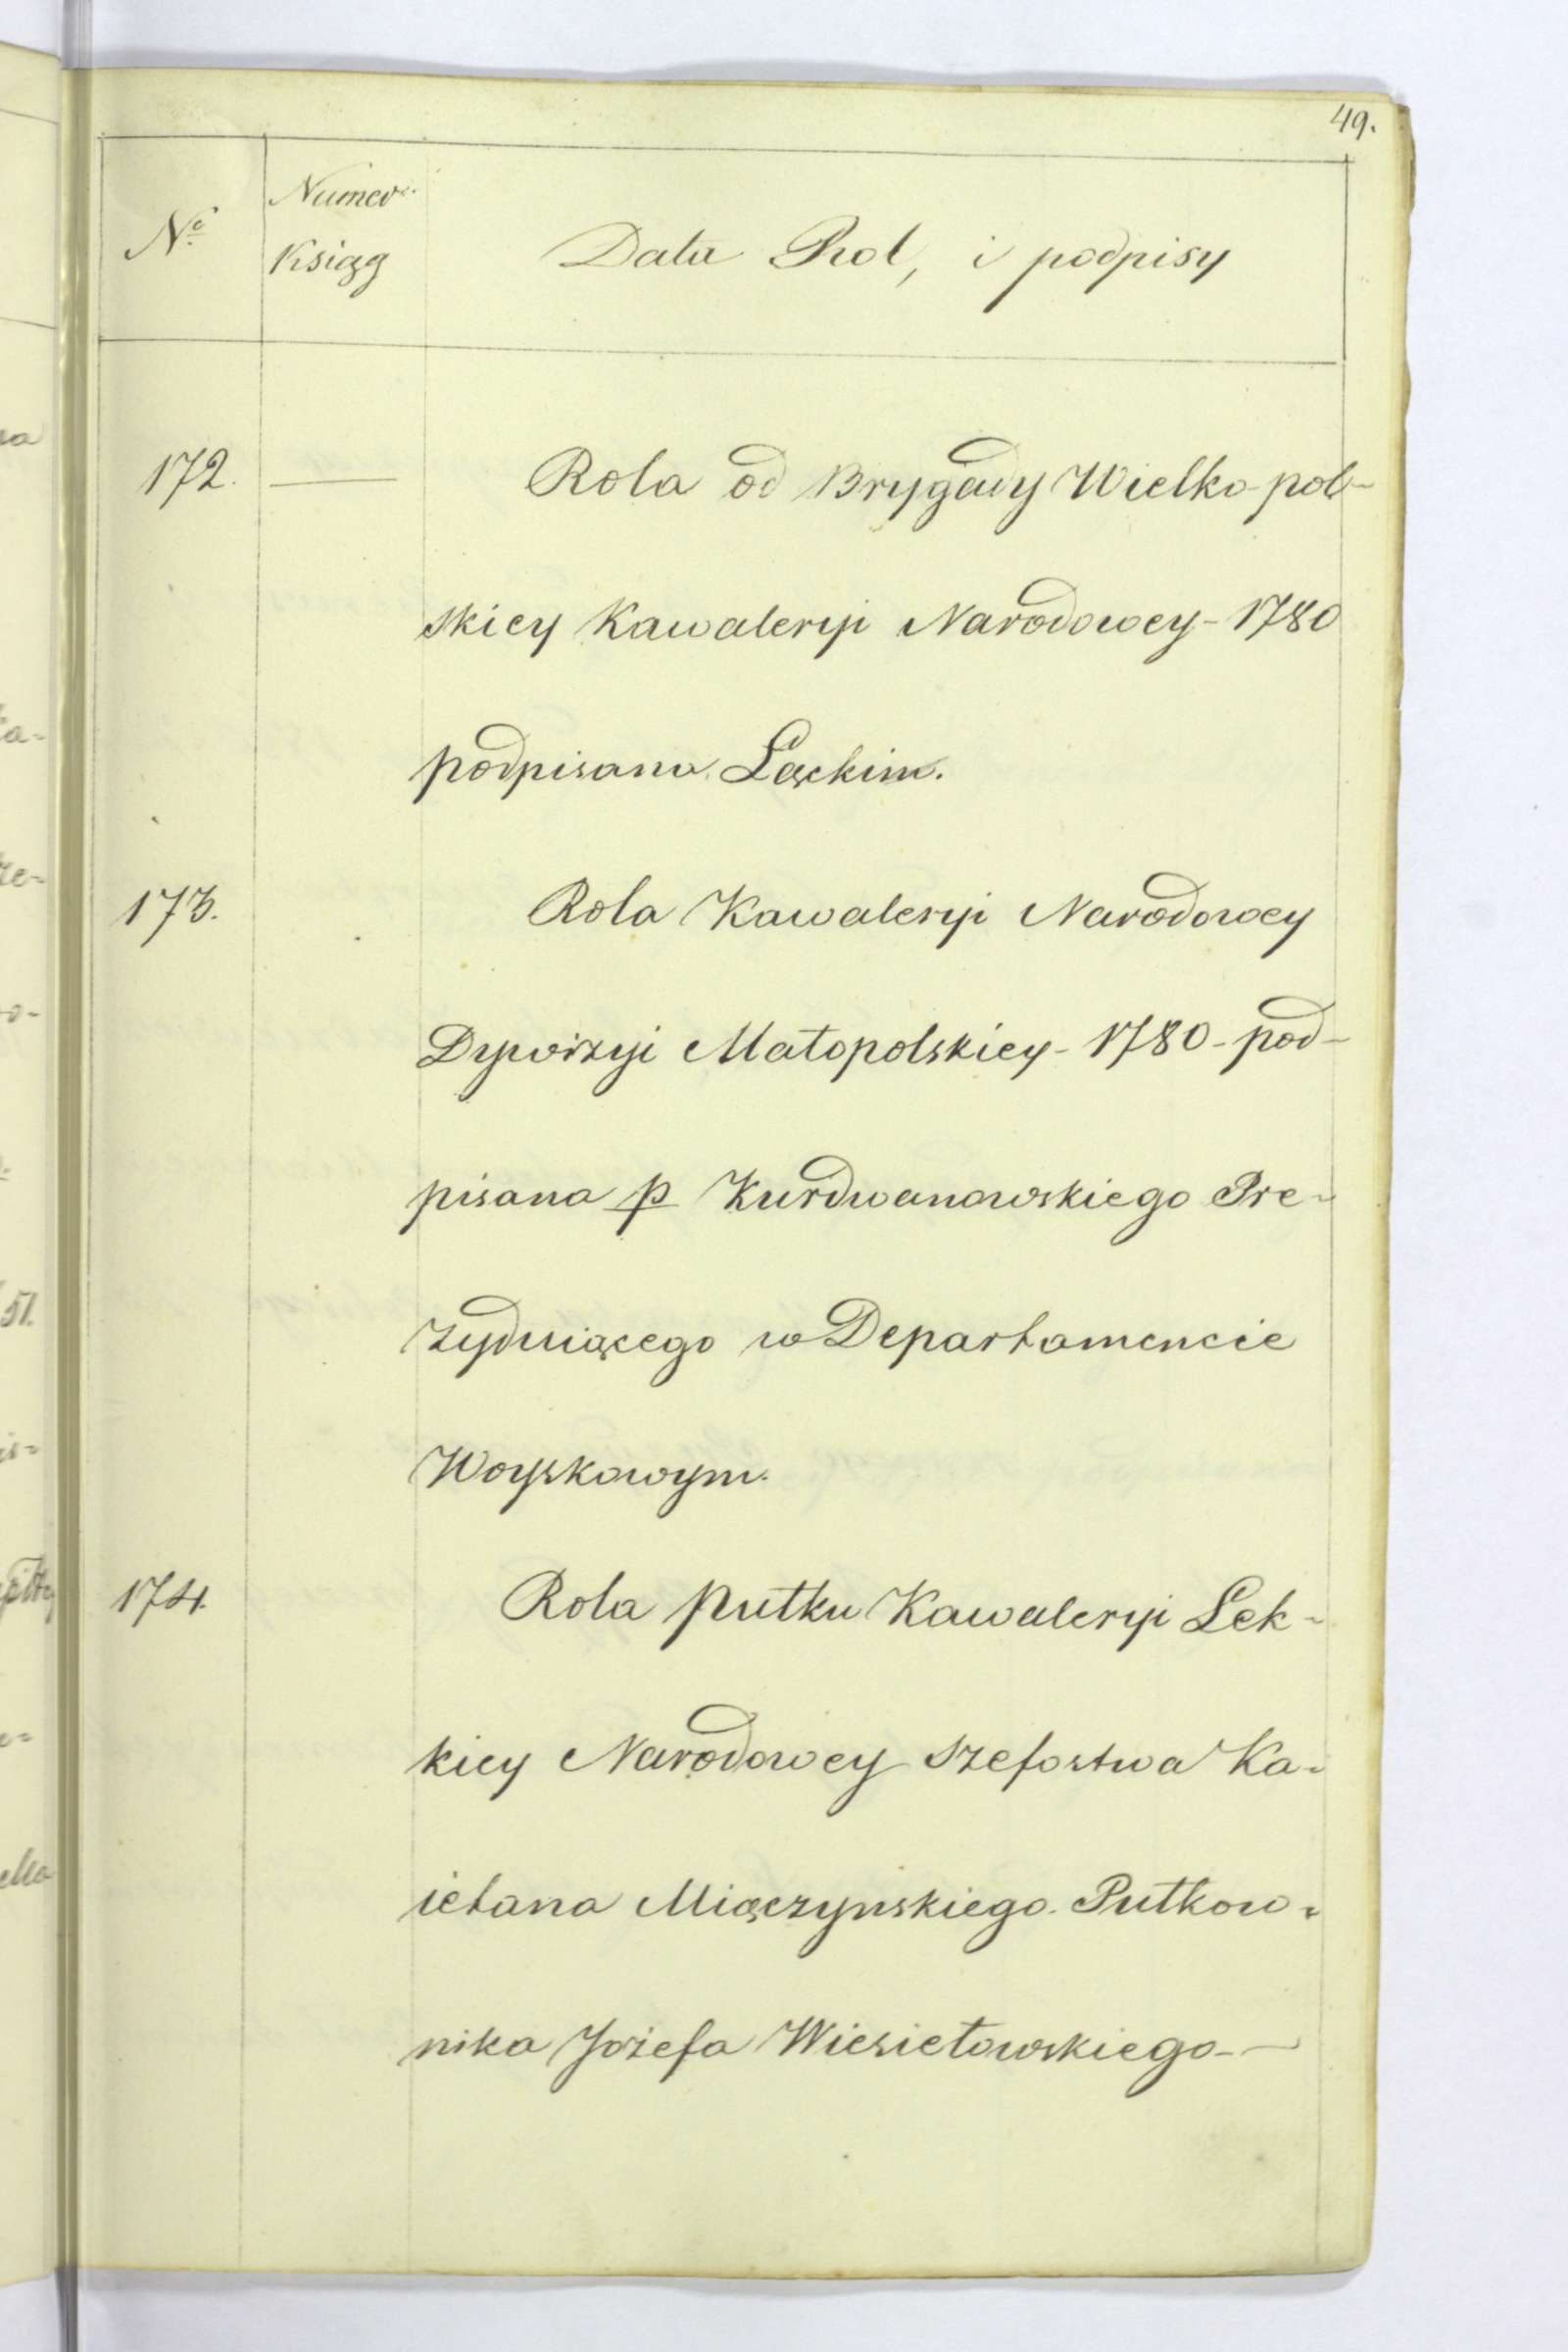 49.
No
Numer
Ksiąg
Data Rol, i podpisy
172. — Rola od Brygady Wielko-pol-
skiey Kawaleryi Narodowey - 1780
podpisana Łąckim.
173. Rola Kawaleryi Narodowey
Dywizyi Małopolskiey - 1780 - pod-
pisana p Kurdwanowskiego Pre-
zyduiącego w Departamencie
Woyskowym.
174. Rola pułku Kawaleryi Lek-
kiey Narodowey Szefostwa Ka-
ietana Miączynskiego Pułkow-
nika Jozefa Wiesiełowskiego -